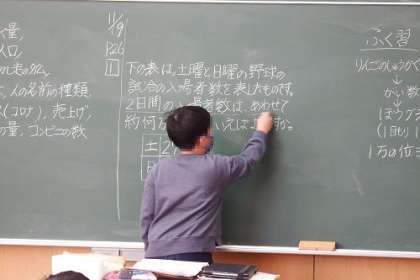 く量,
人口,
人の名前の種類,
(コロナ), 売上げ,
の量, コンビニの数
11/19
P.26
1
下の表は,土曜と日曜の野球の
試合の入場者数を表したものです。
2日間の入場者数は,あわせて
約何万
いえば
土
ふく習
りんごのしゅうかく
↓
がい数
↓
ぼうグラフ
(1目もり
↓
1万の位